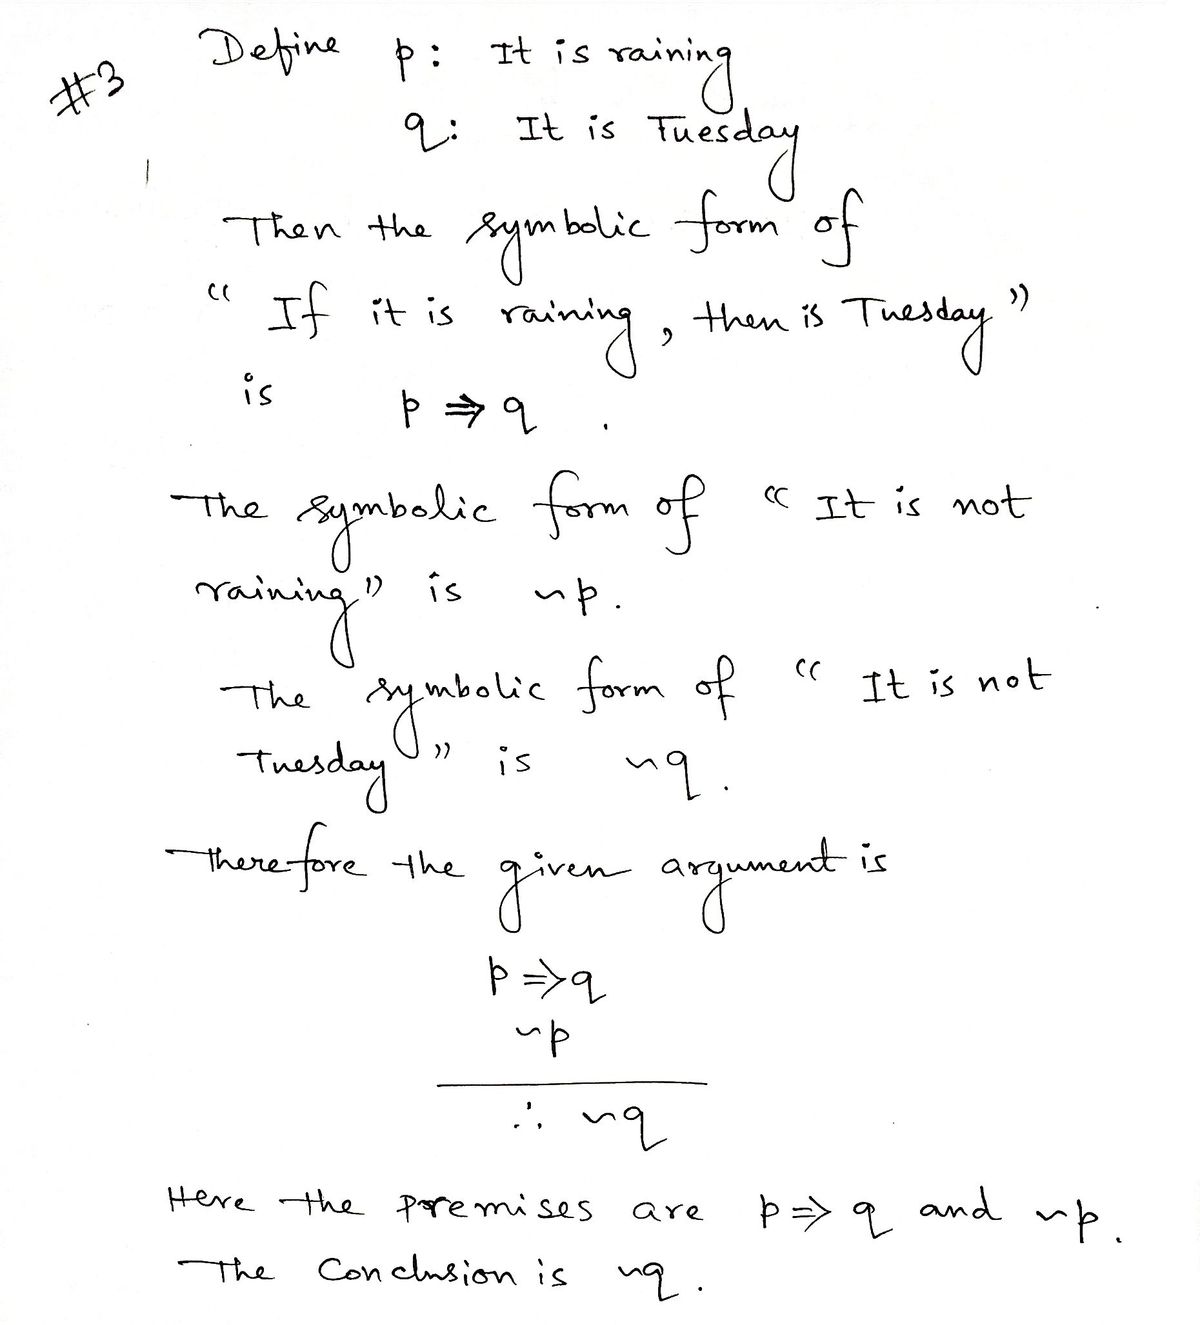 #3 Define p: It is raining
q: It is Tuesday
Then the symbolic form of
“ If it is raining, then is Tuesday”
is p ⇒ q .
The symbolic form of “ It is not
raining” is ~p.
The symbolic form of “ It is not
Tuesday” is ~q.
Therefore the given argument is
p ⇒ q
~p
∴ ~q
Here the premises are p ⇒ q and ~p.
The Conclusion is ~q.